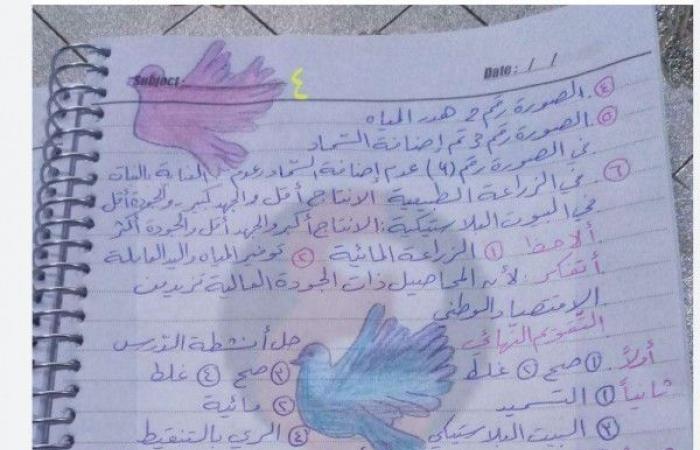 Subject:
Date: / /
٤
④ الصورة رقم 2 هدر المياه
⑤ الصورة رقم 3 تم إضافة السماد
في الصورة رقم (4) عدم إضافة السماد وعدم العناية بالنبات
⑥ في الزراعة الطبيعية الانتاج أقل والجهد كبير والجودة أقل
في البيوت البلاستيكية: الانتاج أكبر والجهد أقل والجودة أكثر
ألاحظ ① الزراعة المائية ② توفير المياه واليد العاملة
أتفكر: لأن المحاصيل ذات الجودة العالية تزيد من
الاقتصاد الوطني
التقويم النهائي حل أنشطة الدرس
أولاً: ① صح ② غلط ③ صح ④ غلط
ثانياً ① التسميد ② مائية
③ البيت البلاستيكي ④ الري بالتنقيط